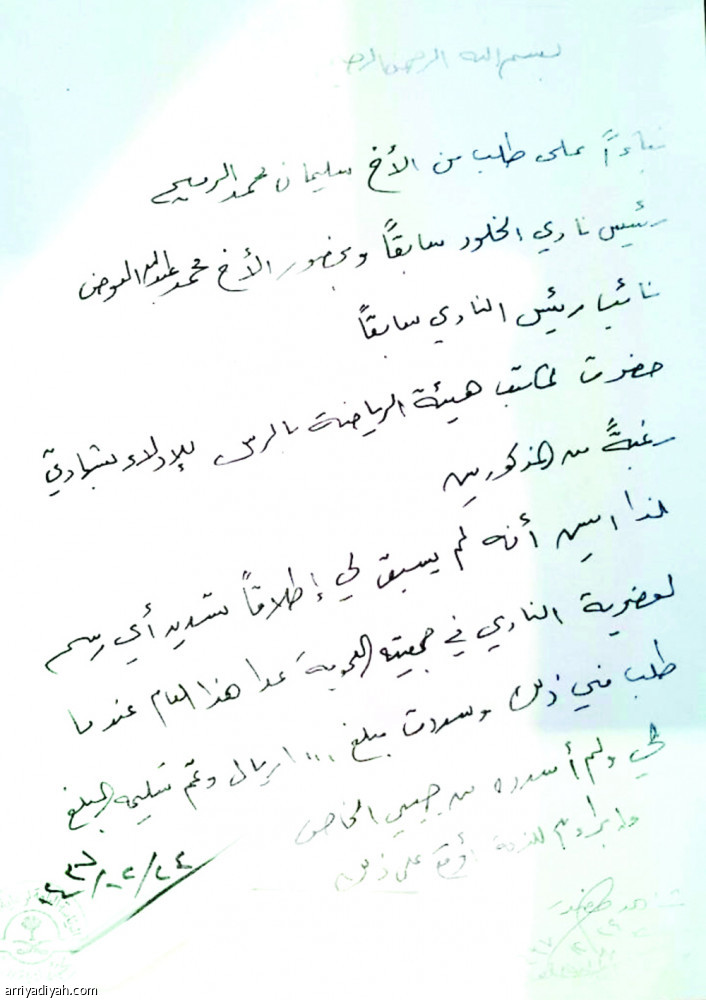 بسم الله الرحمن الرحيم
بناءاً على طلب من الأخ سليمان محمد الرميحي
رئيس نادي الخلود سابقاً وبحضور الأخ محمد عبدالله العوض
نائب رئيس النادي سابقاً
حضرت لمكتب هيئة الرياضة بالرس للإدلاء بشهادتي
رغبةً من المذكورين
لذا أبين أنه لم يسبق لي إطلاقاً تسديد أي رسم
لعضوية النادي في جمعيته العمومية عدا هذا العام عندما
طلب مني ذلك وسددت مبلغ ١٠٠٠ ريال وتم تسليم المبلغ
لي ولم أسدده من جيبي الخاص
ولإبراء للذمة أوقع على ذلك
٢٤/٠٢/١٤٣٧
arriyadiyah.com